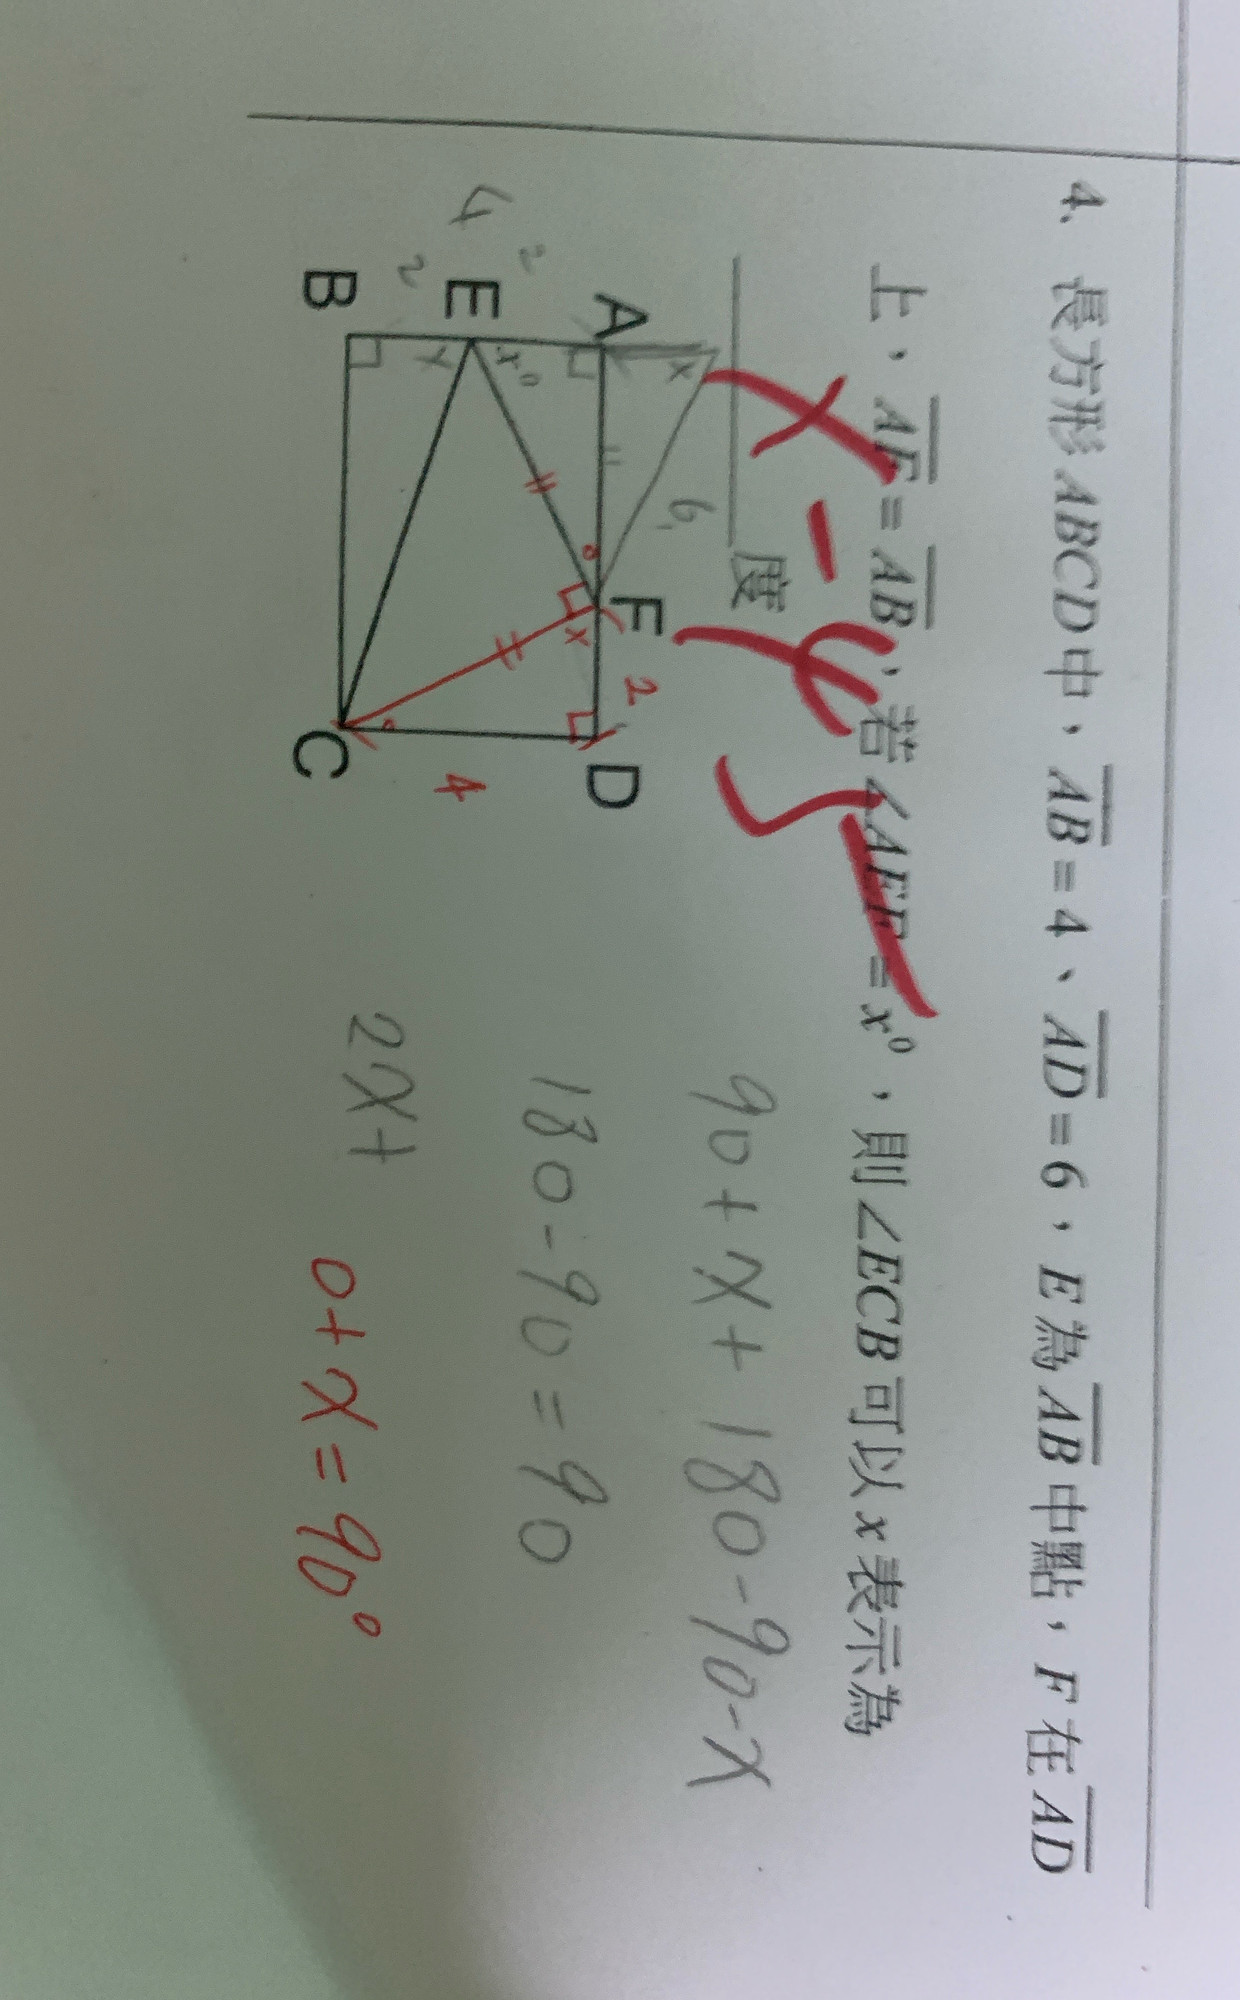 4、長方形ABCD中，AB=4、AD=6，E為AB中點，F在AD
上，AF=AB，若∠AEF=x⁰，則∠ECB可以x表示為
度
x-45
A
F
D
E
B
C
x
6
2
x
x⁰
2
2
4
4
90+x+180-90-x
180-90=90
2x+
0+x=90°